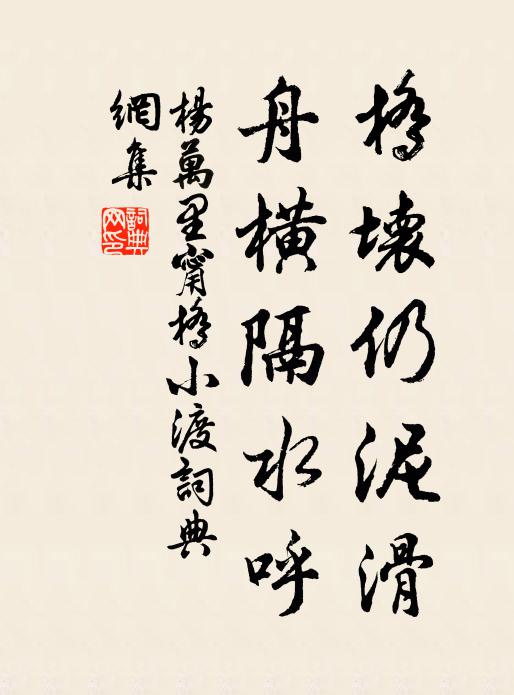 橋壞仍泥滑
舟橫隔水呼
楊萬里甯橋小渡詞典
網集
詞典
网印